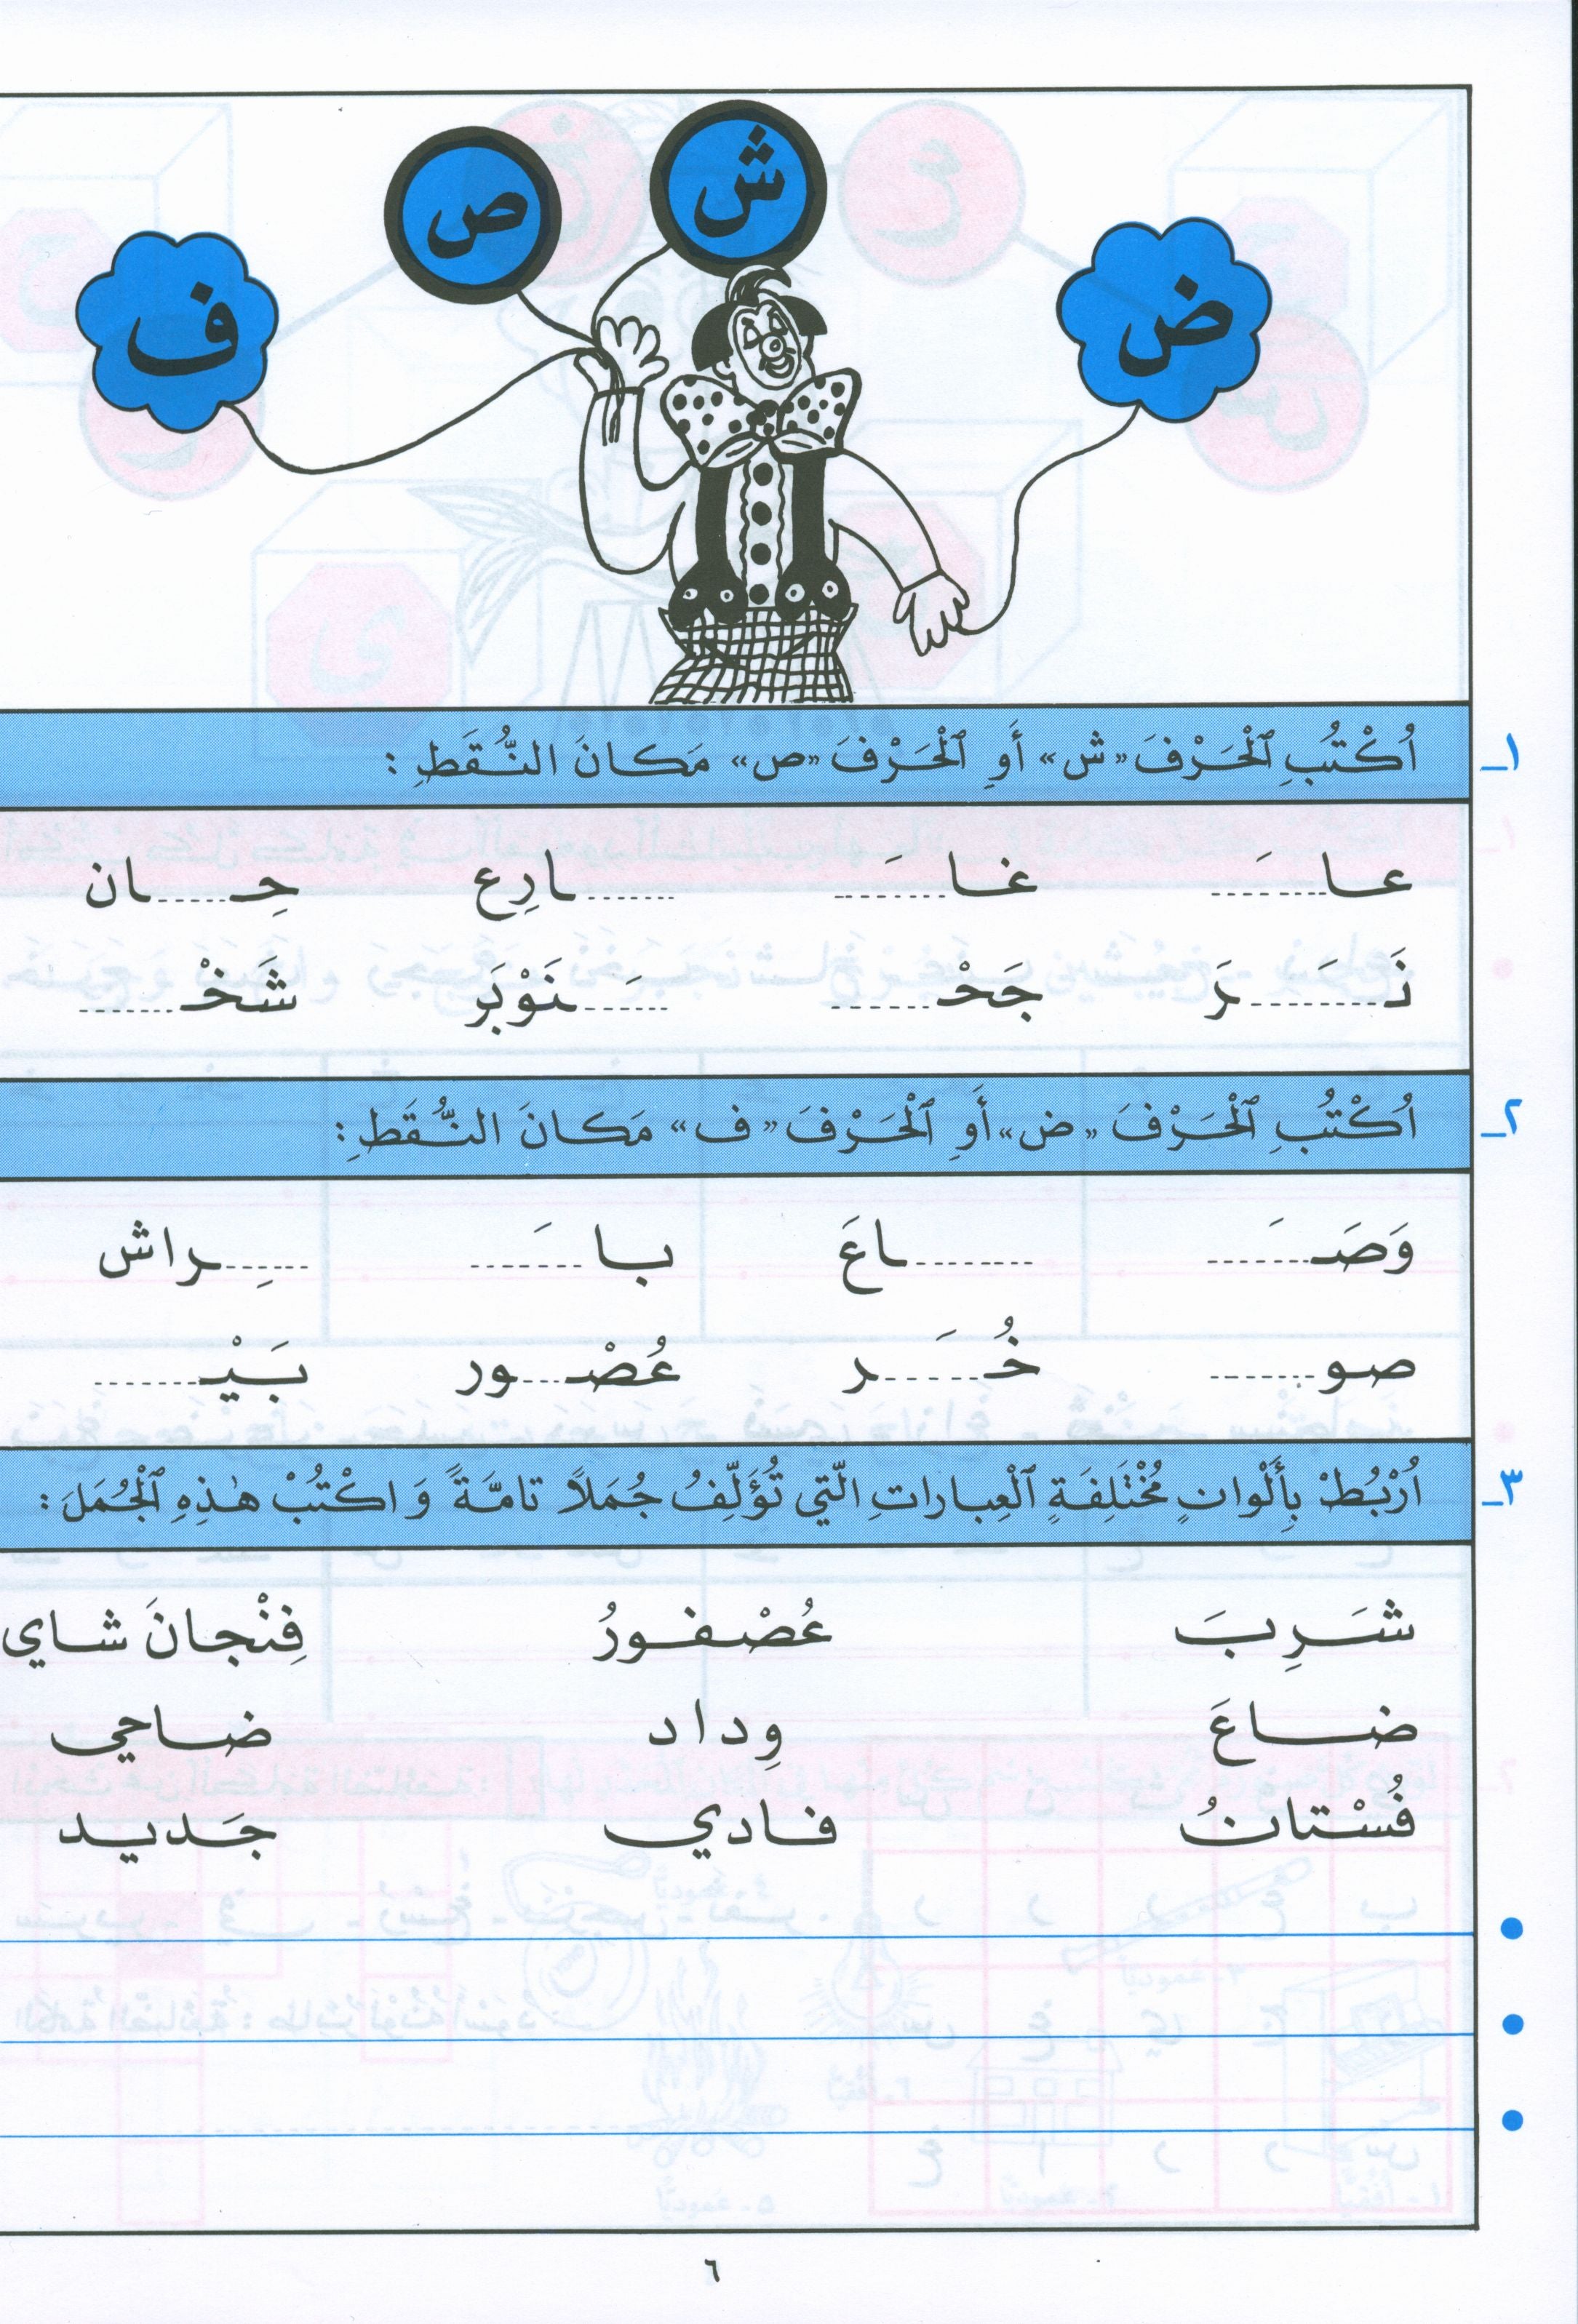 ض ش ص ف
١ـ اُكْتُبِ ٱلْحَرْفَ «ش» أَوِ ٱلْحَرْفَ «ص» مَكانَ النُّقَطِ :
عا......َ غا......َ ......ارِع حِـ......ان
نَـ......َـر جَحْـ...... ......َـنَوْبَر شَخْـ......
٢ـ اُكْتُبِ ٱلْحَرْفَ «ض» أَوِ ٱلْحَرْفَ «ف» مَكانَ النُّقَطِ :
وَصَـ......َ ......اعَ با......َ ......ِـراش
صو...... خُـ......َـر عُصْـ......ور بَيْـ......
٣ـ اُرْبُطْ بِأَلْوانٍ مُخْتَلِفَةٍ ٱلْعِباراتِ الَّتي تُؤَلِّفُ جُمَلاً تامَّةً وَ اكْتُبْ هٰذِهِ ٱلْجُمَلَ :
شَرِبَ عُصْفورُ فِنْجانَ شاي
ضاعَ وِداد ضاحي
فُسْتانُ فادي جَديد
٦